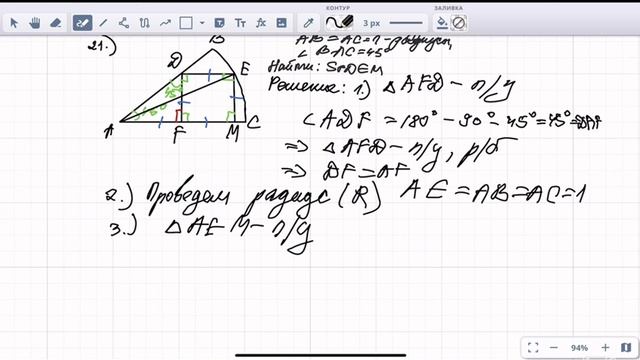 КОНТУР ЗАЛИВКА
3 px
21.)
AB = AC = 1 - радиус,
∠ BAC = 45°
Найти: S
Решение: 1.) △ AFD - п/у
B
D
E
A
F
M
C
∠ ADF = 180° - 90° - 45° = 45° =
=> △ AFD - п/у, р/б
=> DF = AF
2.) Проведем радиус (R) AE = AB = AC = 1
3.) △ AEM - п/у
94%